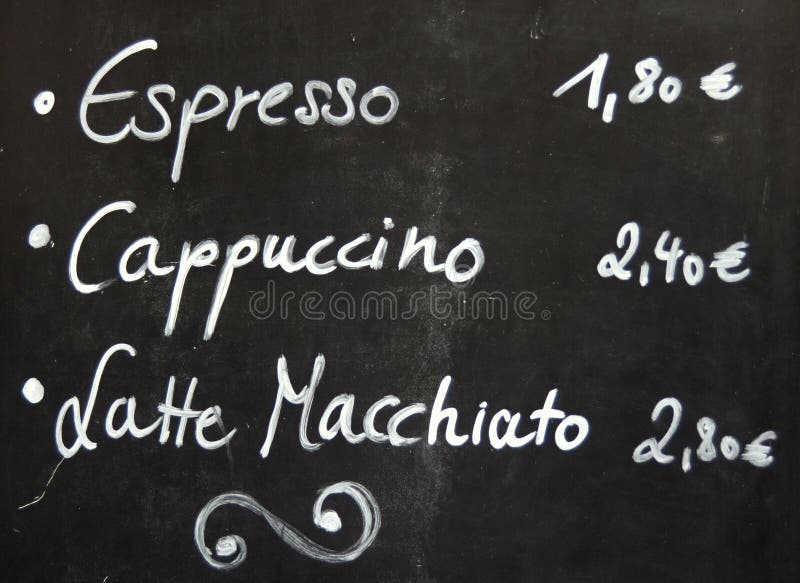 • Espresso 1,80 €
• Cappuccino 2,40 €
• Latte Macchiato 2,80 €
dreamstime